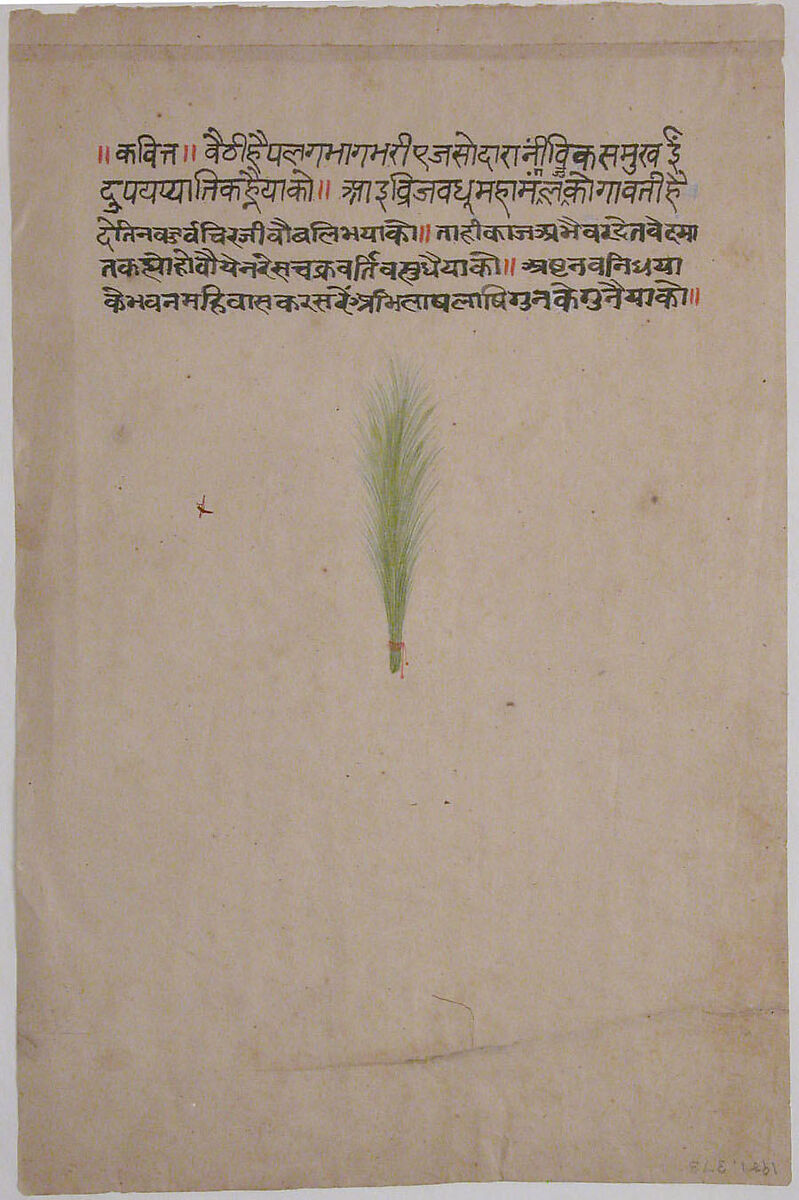 ॥ कवित्त ॥ वैठीहैपलगभागभरीएजसोदारानींविकसमुखइं
दुपयप्यातिकन्हैयाको॥ आइव्रिजवधूमहामंलकोगावतीहै
देतिनवचिरजीवौबलिभयाको॥ ताहीकाजअभैवरदेतवेदमा
तकह्योहोवौयेनरेसचक्रवर्तिवसुधैयाकौ॥ अष्टनवनिधया
केभवनमहिवासकरसरेंअभिलाषलाषिगुनकेगुनैयाको॥